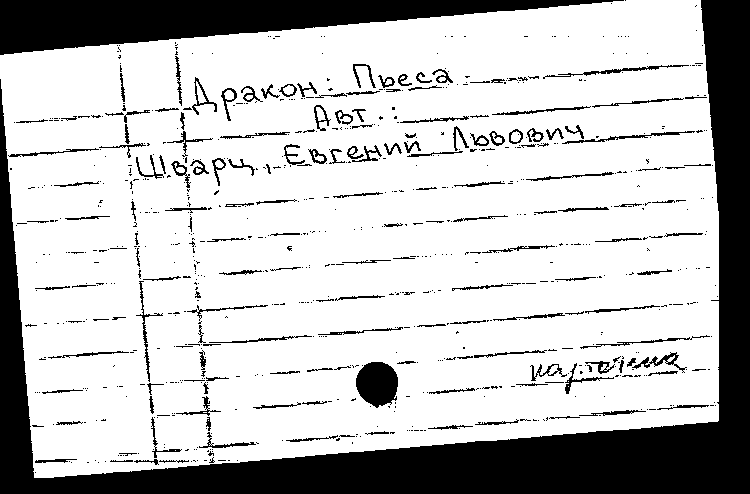 Дракон: Пьеса.
Авт.:
Шварц, Евгений Львович.